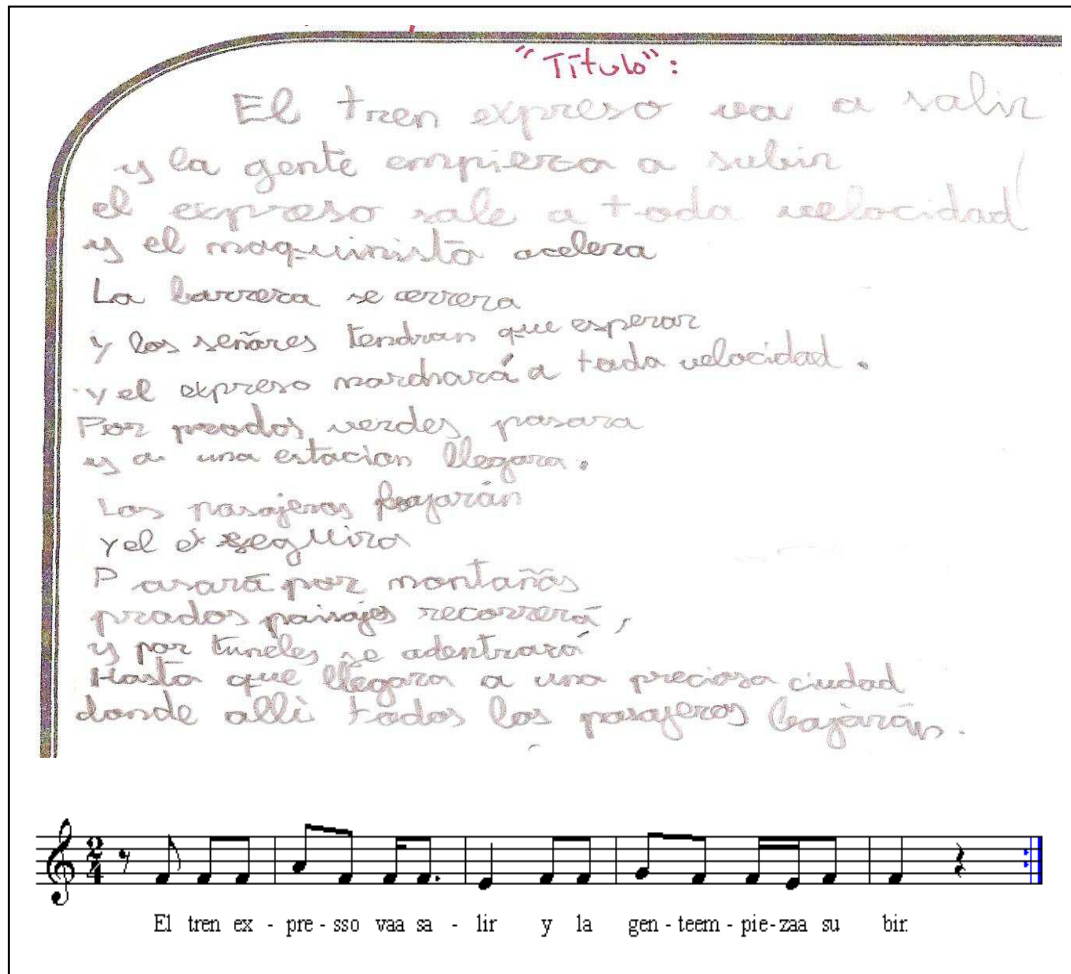 "Título":
El tren expreso va a salir
y la gente empieza a subir
el expreso sale a toda velocidad
y el maquinista acelera
La barrera se cerrera
y los señores tendran que esperar
y el expreso marchará a toda velocidad.
Por prados verdes pasara
y a una estacion llegara.
Los pasajeros bajarán
y el seguira
Pasará por montañas
prados paisajes recorrerá,
y por tuneles se adentrará
Hasta que llegara a una preciosa ciudad
donde allì todos los pasajeros bajarán.
2
4
El tren ex - pre - sso vaa sa - lir y la gen - teem - pie - zaa su bir.